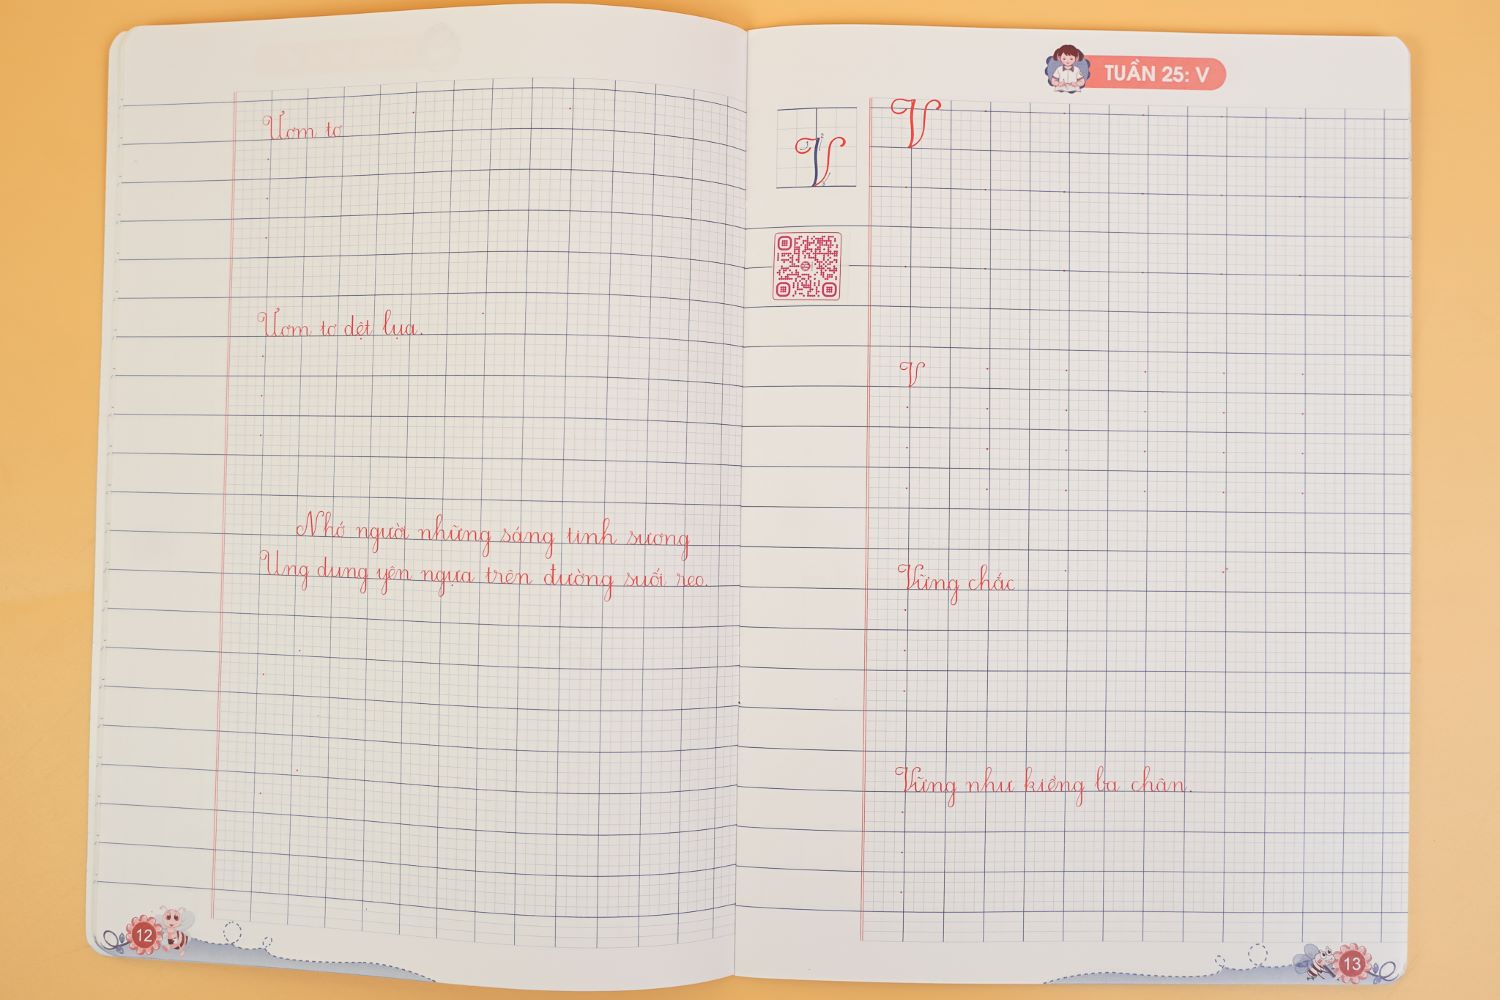 Ươm tơ
Ươm tơ dệt lụa.
Nhớ người những sáng tinh sương
Ung dung yên ngựa trên đường suối reo.
12
TUẦN 25: V
V
V
V
Vững chắc
Vững như kiềng ba chân.
13